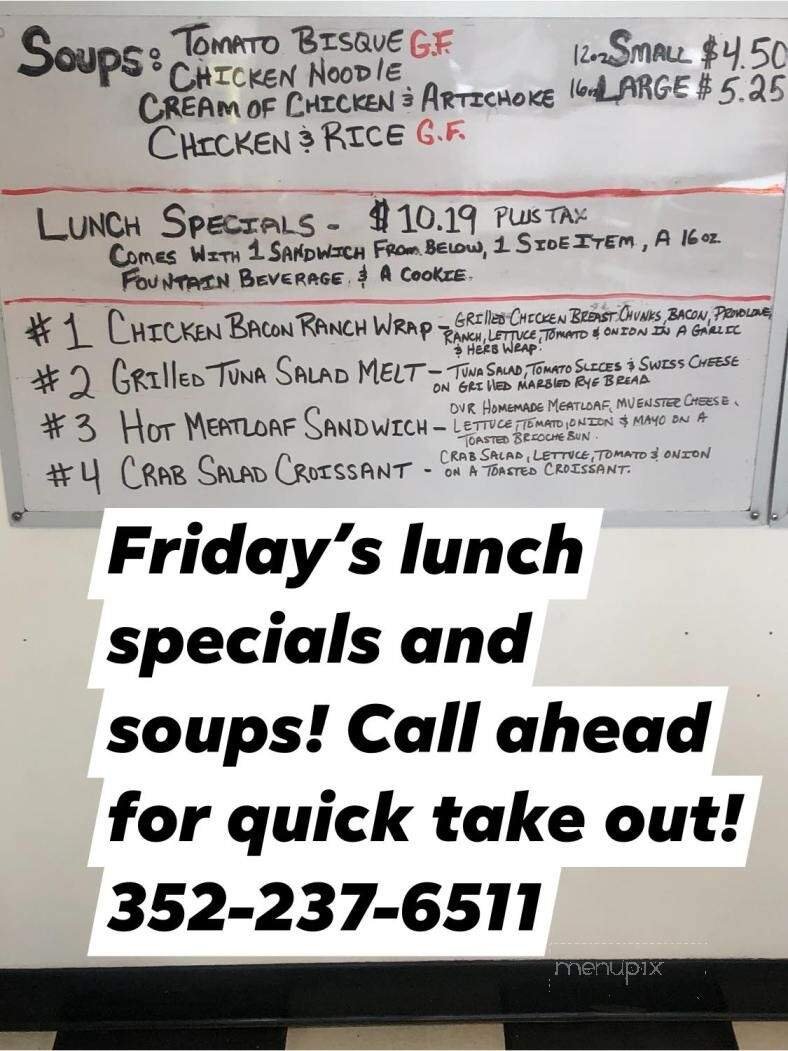 SOUPS: TOMATO BISQUE G.F.
CHICKEN NOODLE
CREAM OF CHICKEN & ARTICHOKE
CHICKEN & RICE G.F.
12oz SMALL $4.50
16oz LARGE $5.25
LUNCH SPECIALS - $10.19 PLUS TAX
COMES WITH 1 SANDWICH FROM BELOW, 1 SIDE ITEM, A 16oz
FOUNTAIN BEVERAGE, & A COOKIE.
#1 CHICKEN BACON RANCH WRAP - GRILLED CHICKEN BREAST CHUNKS, BACON, PROVOLONE,
RANCH, LETTUCE, TOMATO & ONION IN A GARLIC
& HERB WRAP.
#2 GRILLED TUNA SALAD MELT - TUNA SALAD, TOMATO SLICES & SWISS CHEESE
ON GRILLED MARBLED RYE BREAD
#3 HOT MEATLOAF SANDWICH - OUR HOMEMADE MEATLOAF, MUENSTER CHEESE,
LETTUCE, TOMATO, ONION & MAYO ON A
TOASTED BRIOCHE BUN.
#4 CRAB SALAD CROISSANT - CRAB SALAD, LETTUCE, TOMATO & ONION
ON A TOASTED CROISSANT.
Friday's lunch
specials and
soups! Call ahead
for quick take out!
352-237-6511
menupix